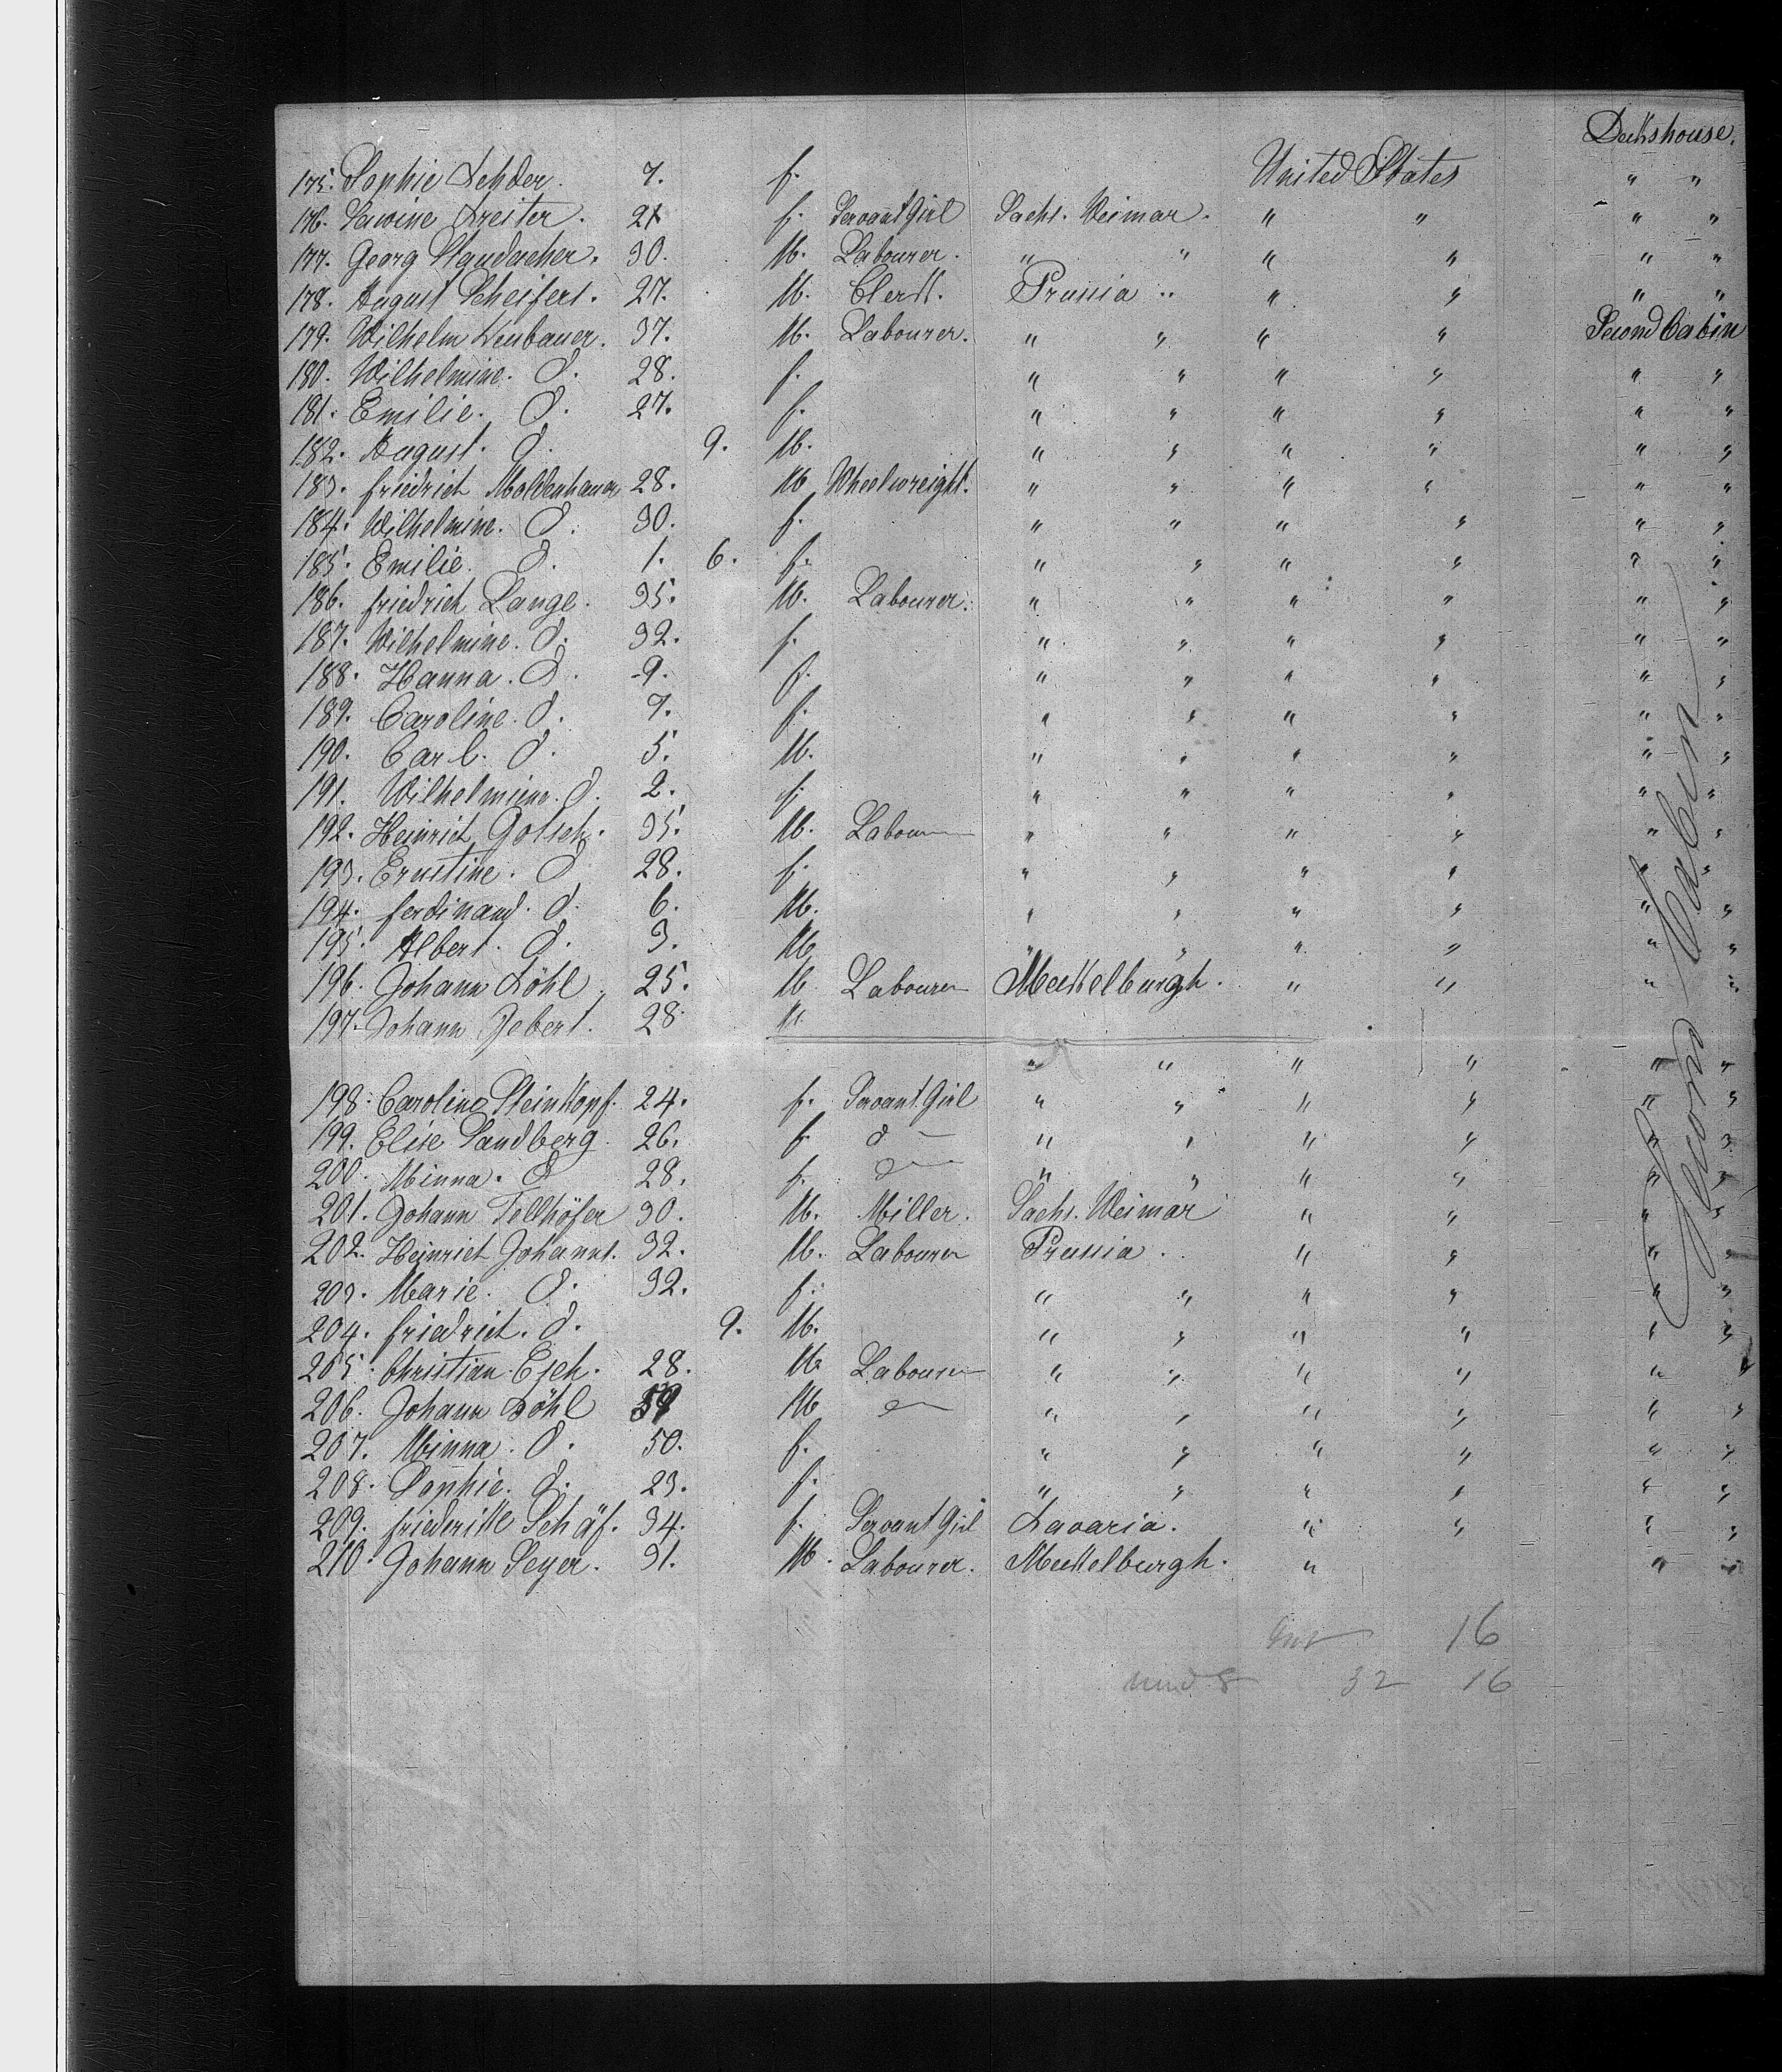 Deckshouse.
175. Sophie Lehder. 7. f. United States " "
176. Lawine Dreiter. 21 f. Servant Girl Sachs. Weimar. " " " "
177. Georg Staudacher. 30. M. Labourer. " " " " " "
178. August Scheifert. 27. M. Clerk. Prussia " " " " "
179. Wilhelm Neubauer. 37. M. Labourer. " " " " Second Cabin
180. Wilhelmine. d. 28. f. " " " " " "
181. Emilie. d. 27. f. " " " " " "
182. August. d. 9. M. " " " " " "
183. friedrich Moldenhauer 28. M Wheelwreight. " " " " " "
184. Wilhelmine. d. 30. f. " " " " " "
185. Emilie. d. 1. 6. f. " " " " " "
186. friedrich Lange. 35. M. Labourer. " " " " " "
187. Wilhelmine. d. 32. f. " " " " " "
188. Hanna. d. 9. f. " " " " " "
189. Caroline. d. 7. f. " " " " " "
190. Carl. d. 5. M. " " " " " "
191. Wilhelmine. d. 2. f. " " " " " "
192. Heinrich Gotsch. 35. M. Labourer " " " " " "
193. Ernstine. d 28. f. " " " " " "
194. ferdinand. d. 6. M. " " " " " "
195. Albert. d. 3. M " " " " " "
196. Johann Döhl. 25. M. Labourer Mecklelburgh. " " " "
197. Johann Gebert. 28 M.
" " " " " "
198. Caroline Steinkopf. 24. f. Servant Girl " " " " " "
199. Elise Sandberg. 26. f. d " " " " " "
200. Minna. d 28. f. d " " " " " "
201. Johann Fellhöfer 30. M. Miller. Sachs. Weimar " " " "
202. Heinrich Johanns. 32. M. Labourer Prussia. " " " "
203. Marie. d. 32. f. " " " " " "
204. friedrich. d. 9. M. " " " " " "
205. Christian Esch. 28. M Labourer " " " " " "
206. Johann Döhl 59 M d " " " " " "
207. Minna. d. 50. f. " " " " " "
208. Sophie. d. 23. f. " " " " " "
209. friederike Schäf. 34. f. Servant Girl Bavaria. " " " "
210. Johann Seyer. 31. M. Labourer. Mecklelburgh. " " "
Second Cabin
16
und 8 32 16